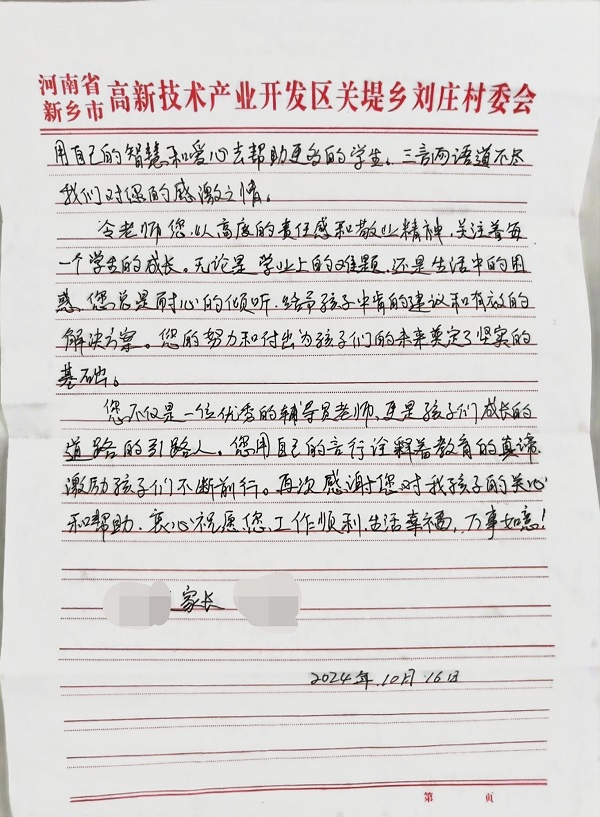 河南省
新乡市 高新技术产业开发区关堤乡刘庄村委会
用自己的智慧和爱心去帮助更多的学生。三言两语道不尽
我们对您的感激之情。
令老师您以高度的责任感和敬业精神,关注着每
一个学生的成长。无论是学业上的难题,还是生活中的困
惑,您总是耐心的倾听,给予孩子中肯的建议和有效的
解决方案。您的努力和付出为孩子们的未来奠定了坚实的
基础。
您不仅是一位优秀的辅导员老师,更是孩子们成长的
道路的引路人。您用自己的言行诠释着教育的真谛,
激励孩子们不断前行。再次感谢您对我孩子的关心
和帮助,衷心祝愿您工作顺利,生活幸福,万事如意!
家长
2024年10月16日
第 页